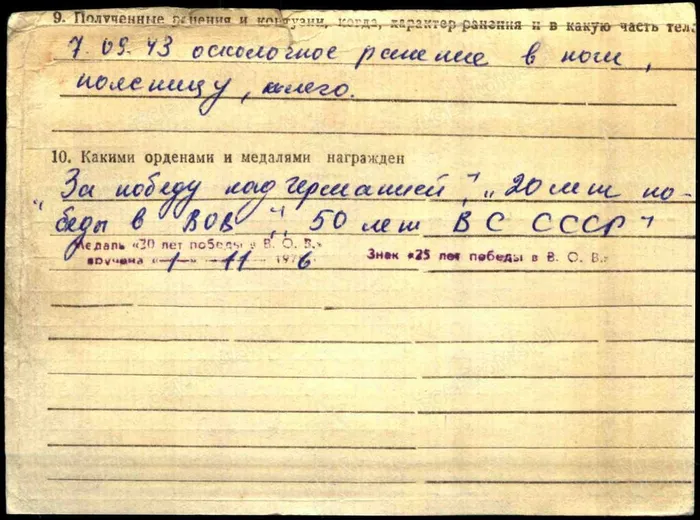 9. Полученные ранения и контузии, когда, характер ранения и в какую часть тела
7.09.43 осколочное ранение в ноги,
поясницу,
10. Какими орденами и медалями награжден
"За победу над германией", "20 лет по-
беды в ВОВ", "50 лет ВС СССР"
Медаль «30 лет победы в В. О. В.»
вручена «1» 11 1976.
Знак «25 лет победы в В. О. В.»